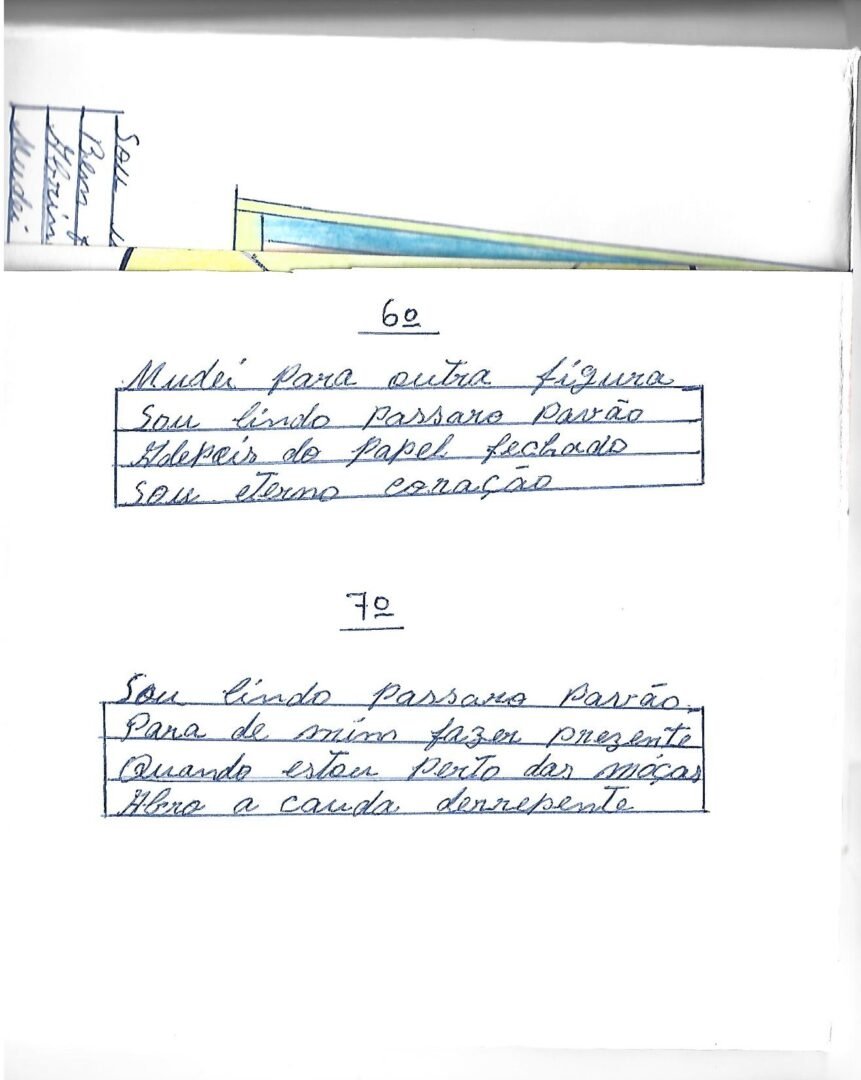 Sou
Bem
Abrin
Mudei
6º
Mudei para outra figura
Sou lindo passaro pavão
Adepois do papel fechado
Sou eterno coração
7º
Sou lindo passaro pavão.
Para de mim fazer prezente
Quando estou perto das móças
Abro a cauda derrepente